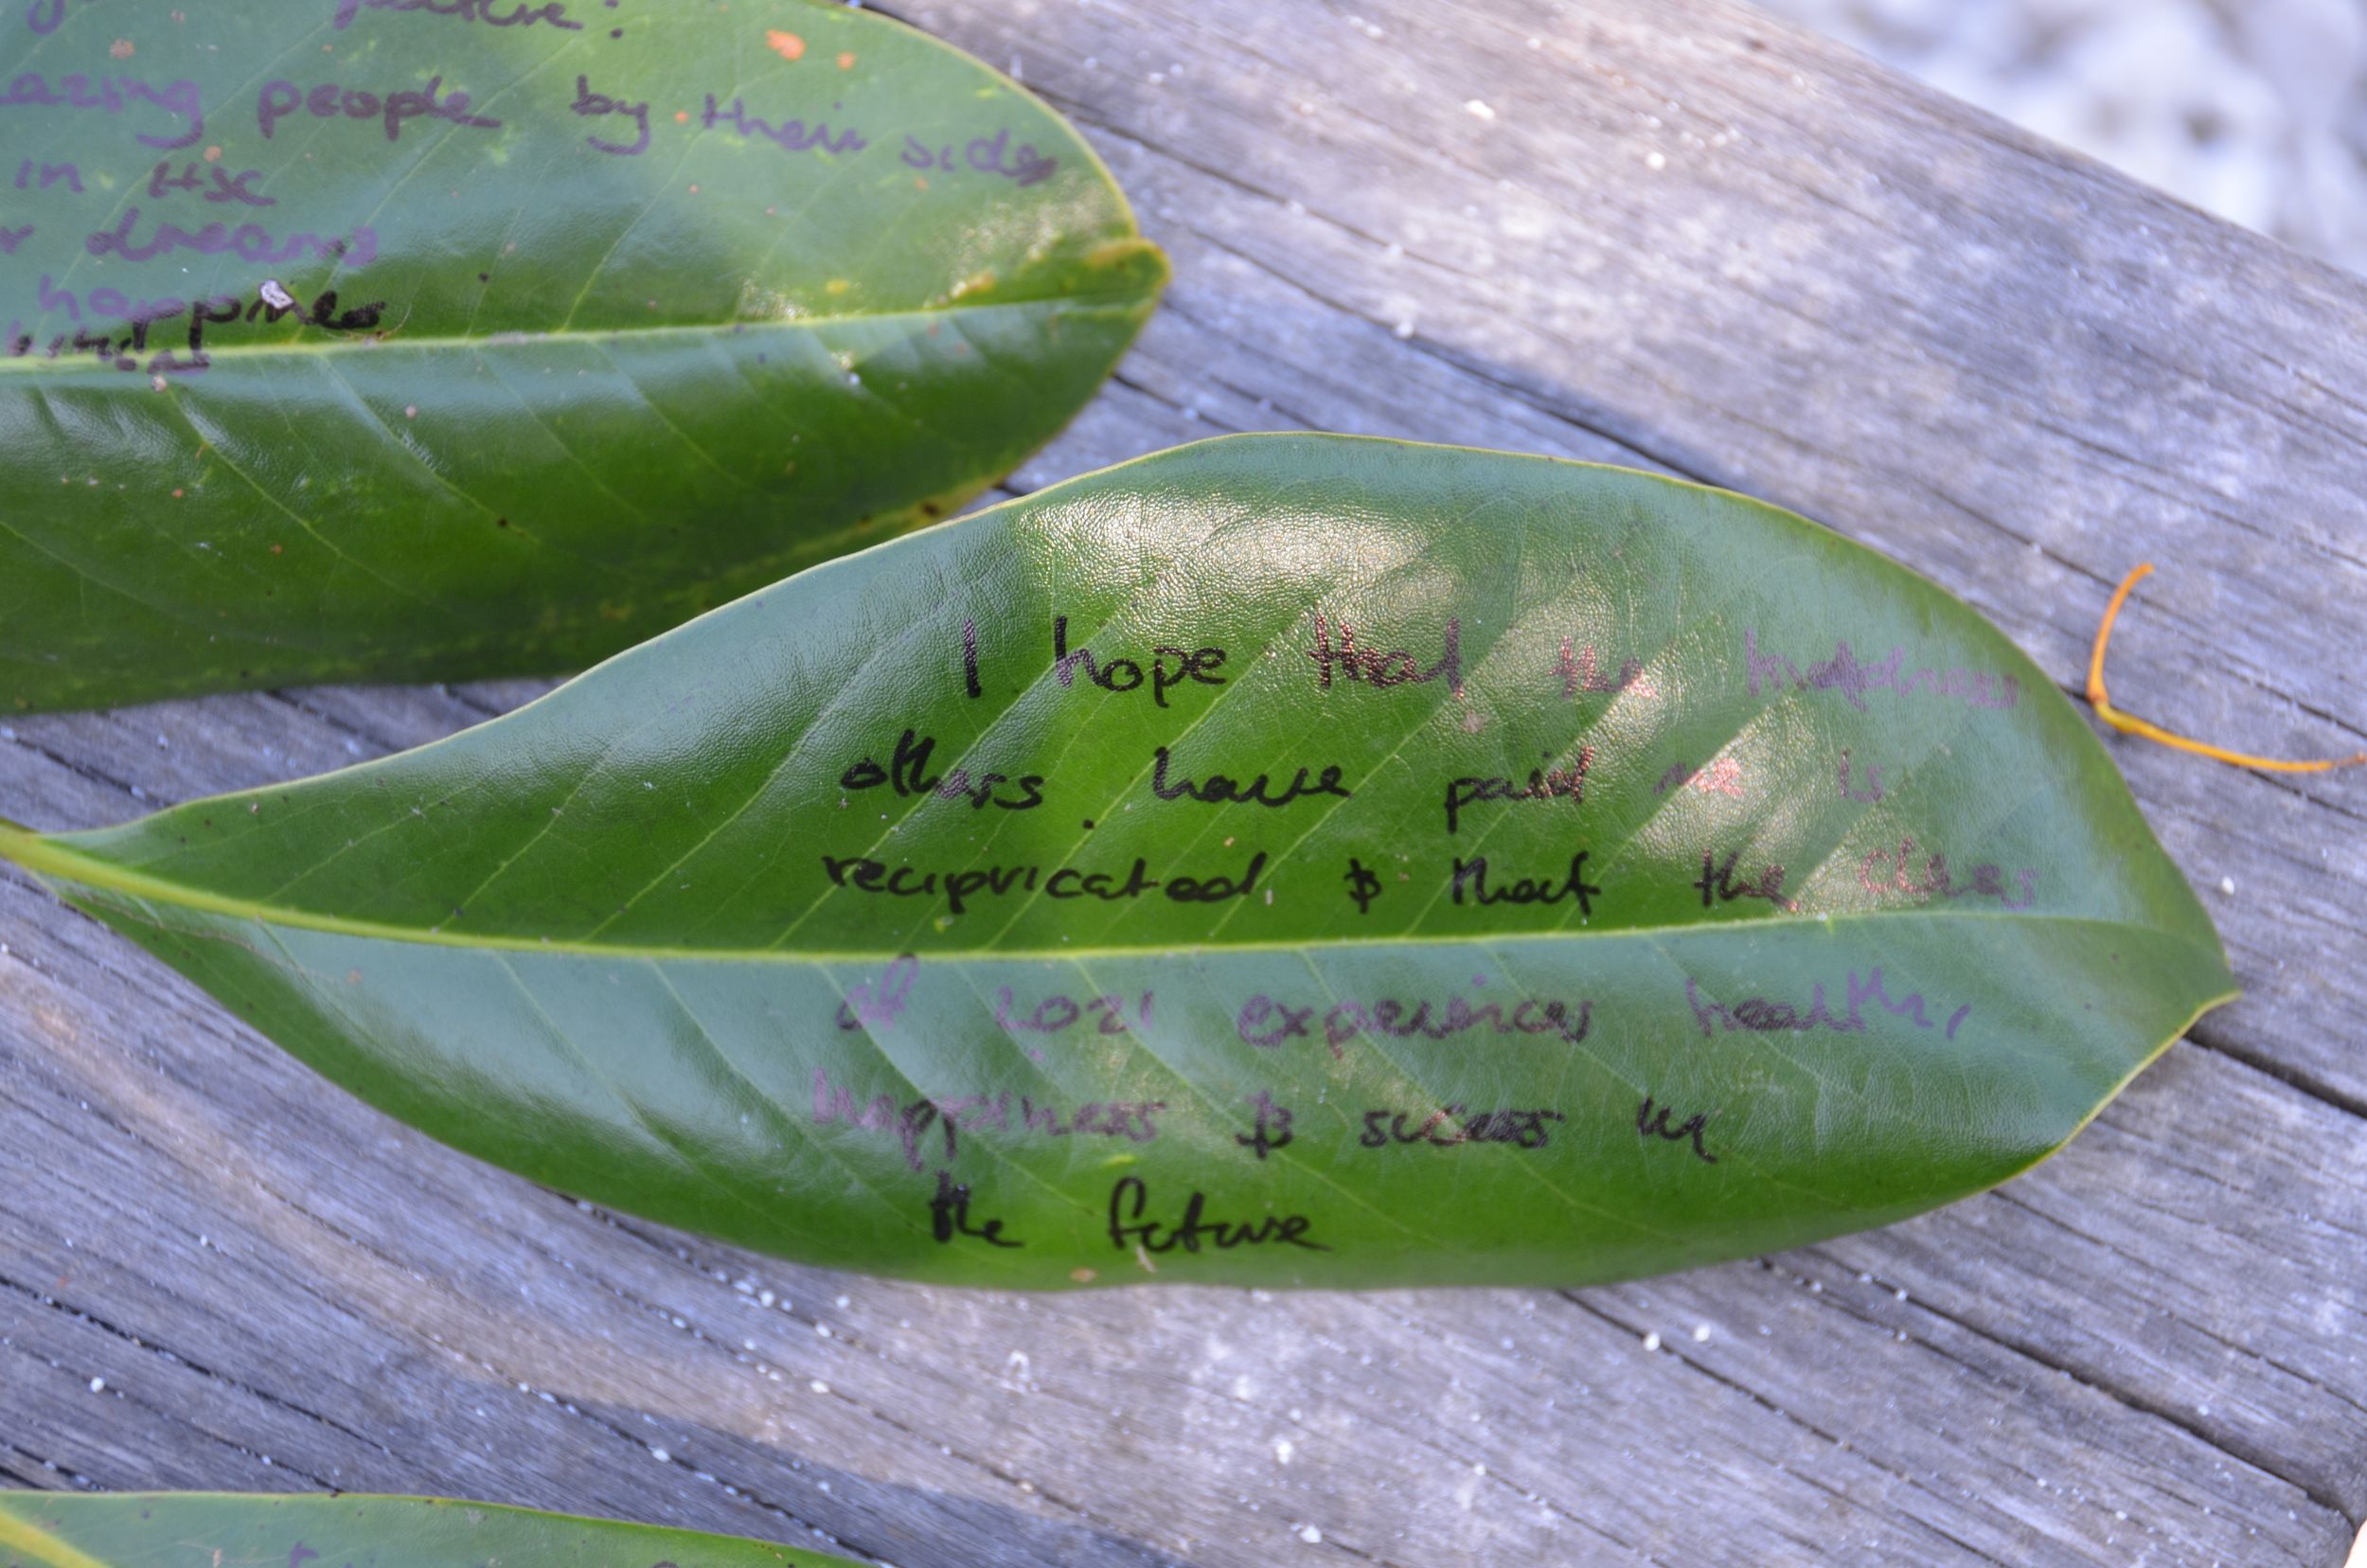 future:
azing people by their side
in HSC
r dreams
happines
I hope that the kindness
others have paid me is
recipricated & that the class
of 2021 experiences health,
happiness & success in
the future